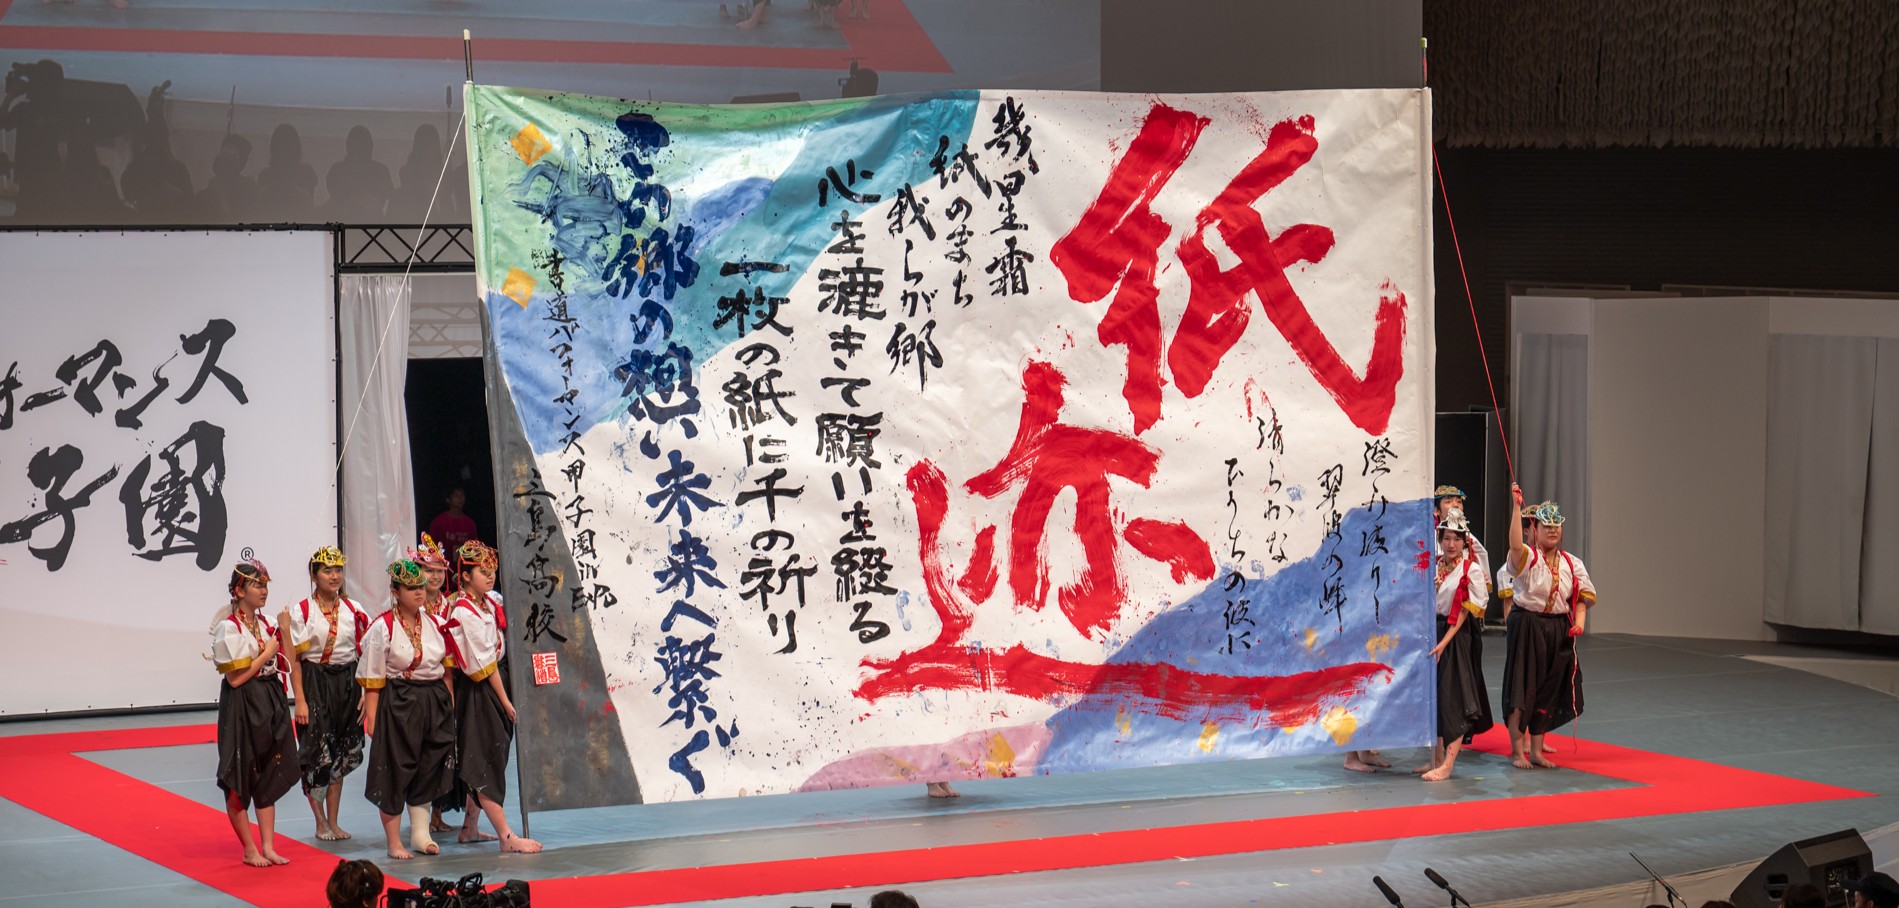 紙迹
澄み渡りし
翠波の峰
清らかな
ひうちの波に
幾星霜
紙のまち
我らが郷
心を漉きて願いを綴る
一枚の紙に千の祈り
この郷の想い未来へ繋ぐ
書道パフォーマンス甲子園in EXPO
三島高校
ォーマンス
子園®